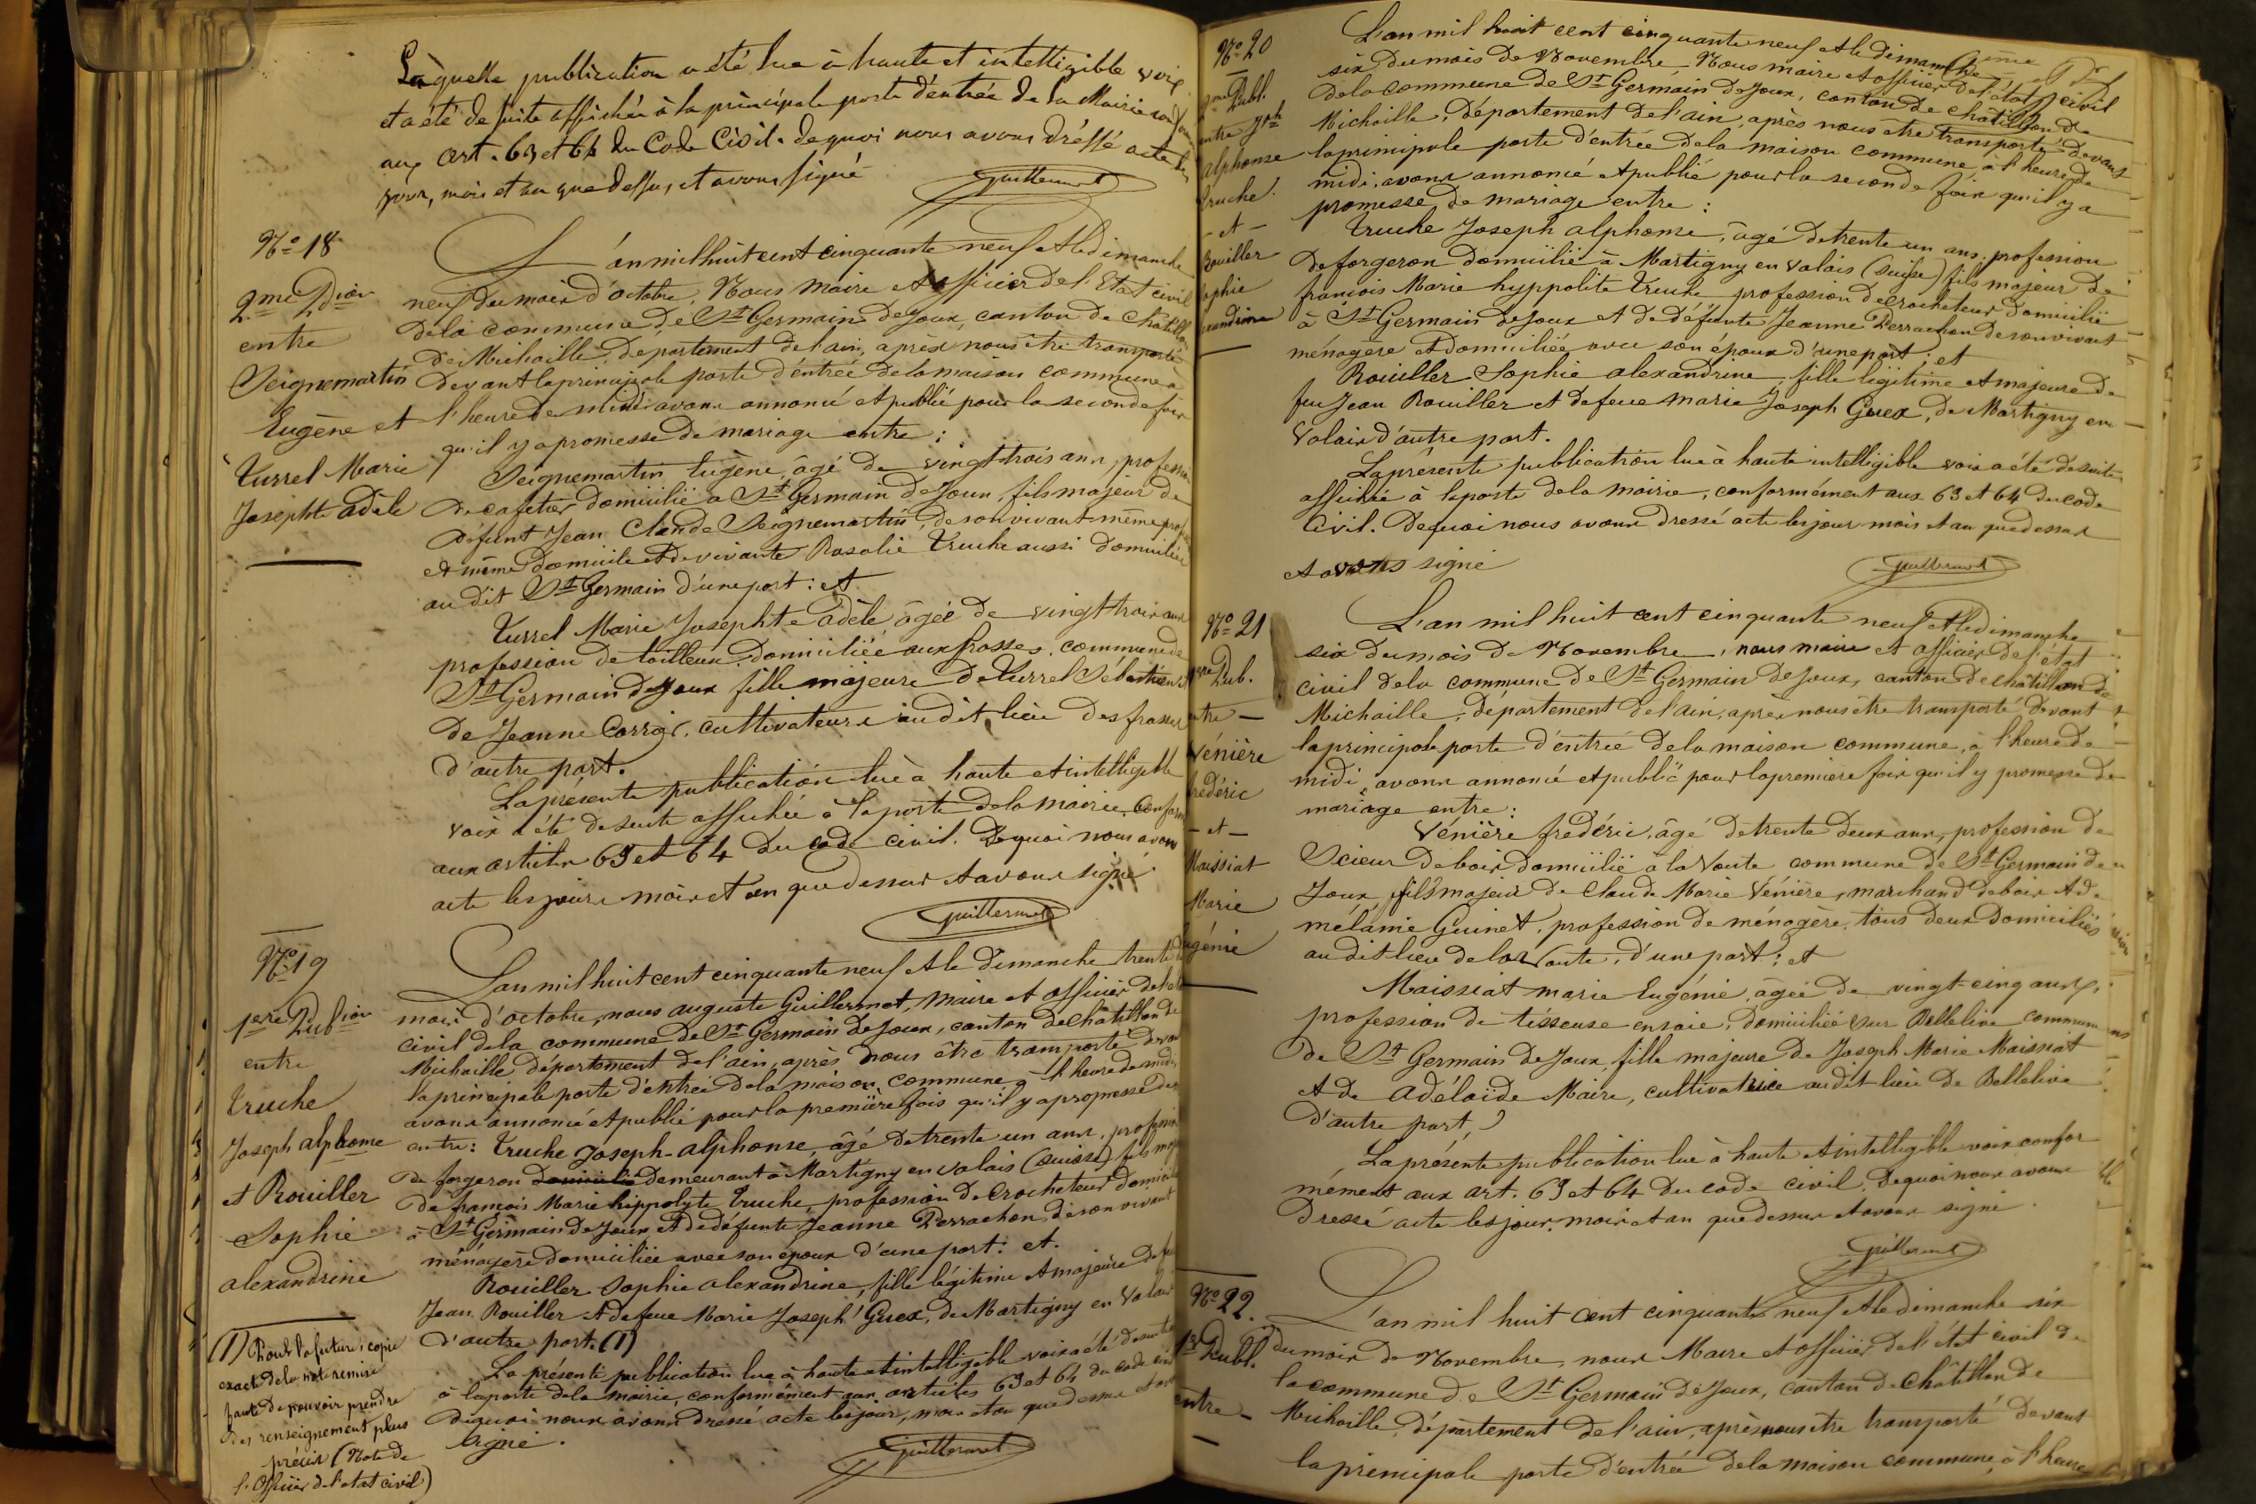 Laquelle publication a été lue à haute et intelligible voix
et a été de suite affichée à la principale porte d'entrée de la Mairie
aux art. 63 et 64 du Code Civil. de quoi nous avons dréssé acte les
jour, mois et an que dessus, et avons signé
Guillermet
No 18
2me Pion
entre
Seignemartin
Eugène et
Turrel Marie
Josephte adèle
L'an mil huit cent cinquante neuf et le dimanche
neuf du mois d'octobre, Nous maire et officier de l'Etat civil
de la commune de St Germain de Joux, canton de Châtillon
de Michaille, département de l'ain, après nous être transporté
devant la principale porte d'éntrée de la maison commune à
l'heure de midi avons annoncé et publié pour la seconde fois
qu'il y a promesse de mariage entre :
Seignemartin Eugène, âgé de vingt trois ans, profession
de cafetier domicilié à St Germain de Joux, fils majeur de
défunt Jean Claude Seignemartin, de son vivant même prof
et même domicile et de vivante Rosalie Truche aussi domiciliée
au dit St Germain d'une part : et
Turrel Marie Josephte adèle âgée de vingt trois ans
profession de tailleuse, domiciliée aux frasses, commune de
St Germain de Joux fille majeure de Turrel Sébastien et
de Jeanne Corroi, cultivateurs au dit lieu des frasses
d'autre part.
La présente publication lue à haute et intelligible
voix a été de suite affichée à la porte de la mairie, confor
aux articles 63 et 64 du code civil. De quoi nous avons
acte les jour, mois et an que dessus et avons signé
Guillermet
No 19
1ere Publion
entre
Truche
Joseph alphonse
et Rouiller
Sophie
alexandrine
(1) Pour la future, copie
exacte de la note remise
faute de pouvoir prendre
des renseignement plus
précis (Note de
l'Officier de l'état civil)
L'an mil huit cent cinquante neuf et le dimanche trente
mois d'octobre, nous auguste Guillermet, Maire et officier de l'état
civil de la commune de St Germain de Joux, canton de Châtillon de
Michaille département de l'ain, après nous être transporté devant
la principale porte d'entrée de la maison commune, à l'heure de midi,
avons annoncé et publié pour la première fois qu'il y a promesse de
entre : Truche Joseph-alphonse, âgé de trente un ans, profession
de forgeron domicilié demeurant à Martigny en valais (Suisse) fils majeur
de françois Marie hippolyte Truche, profession de Crocheteur domicilié
à St Germain de Joux et de défunte Jeanne Perrachon, de son vivant
ménagère domiciliée avec son époux d'une part : et.
Rouiller Sophie alexandrine, fille légitime et majeure de feu
Jean Rouiller et de feue Marie Joseph Guex, de Martigny en Valais
d'autre part. (1)
La présente publication lue à haute et intelligible voix a été de suite
à la porte de la mairie, conformément aux articles 63 et 64 du code civil
de quoi nous avons dressé acte les jour, mois et an que dessus et avons
signé.
Guillermet
No 20
Publ.
entre Jph
alphonse
Truche
- et -
Rouiller
Sophie
alexandrine
L'an mil huit cent cinquante neuf et le dimanche
six du mois de Novembre. Nous maire et officier de l'état civil
de la commune de St Germain de Joux, canton de Châtillon de
Michaille, département de l'ain, après nous être transporté devant
la principale porte d'entrée de la maison commune, à l'heure de
midi, avons annoncé et publié pour la seconde fois qu'il y a
promesse de mariage entre :
Truche Joseph alphonse, âgé de trente un ans, profession
de forgeron domicilié à Martigny en Valais (Suisse) fils majeur de
françois Marie hyppolite Truche profession de crocheteur domicilié
à St Germain de Joux et de défunte Jeanne Perrachon de son vivant
ménagère et domiciliée avec son époux d'une part : et
Rouiller Sophie alexandrine, fille légitime et majeure de
feu Jean Rouiller et de feue Marie Joseph Guex, de Martigny en
Valais d'autre part.
La présente publication lue à haute intelligible voix a été de suite
affichée à la porte de la mairie, conformément aux 63 et 64 du code
Civil. De quoi nous avons dressé acte les jour mois et an que dessus
et avons signé
Guillermet
No 21
1ere Pub.
entre -
Vénière
frédéric
- et -
Maissiat
Marie
Eugénie
L'an mil huit cent cinquante neuf et le dimanche
six du mois de Novembre, nous maire et officier de l'état
civil de la commune de St Germain de Joux, canton de Châtillon de
Michaille, département de l'ain, après nous être transporté devant
la principale porte d'entrée de la maison commune, à l'heure de
midi, avons annoncé et publié pour la première fois qu'il y promesse de
mariage entre :
Vénière frédéric, âgé de trente deux ans, profession de
Scieur de bois domicilié à la Voute commune de St Germain de
Joux, fils majeur de Claude Marie Vénière, marchand de bois et de
mélanie Guinet, profession de ménagère, tous deux domiciliés
au dit lieu de la Voute, d'une part : et
Maissiat marie Eugénie, agée de vingt-cinq ans,
profession de tisseuse en soie, domiciliée sur Bellelive commune
de St Germain de Joux, fille majeure de Joseph Marie Maissiat
et de Adélaïde Maire, cultivatrice au dit lieu de Bellelive
d'autre part,
La présente publication lue à haute et intelligible voix confor
mément aux art. 63 et 64 du code civil, De quoi nous avons
Dressé acte les jour, mois et an que dessus et avons signé.
Guillermet
No 22.
1re Publ.
entre -
L'an mil huit cent cinquante neuf et le dimanche six
du mois de Novembre, nous Maire et officier de l'état civil de
la commune de St Germain de Joux, canton de Châtillon de
Michaille, département de l'ain, après nous être transporté devant
la principale porte d'entrée de la maison commune, à l'heure